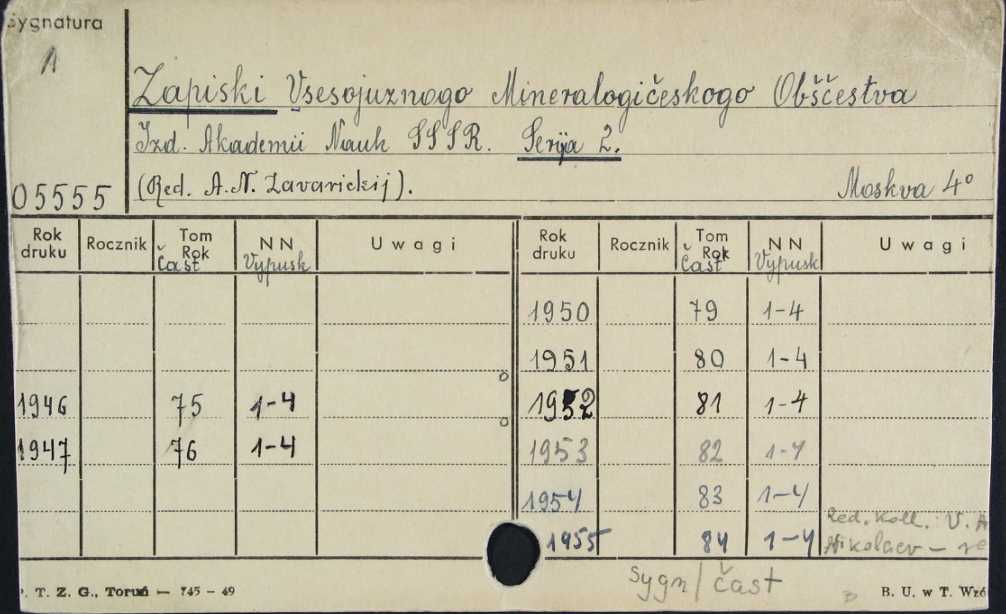 Sygnatura
1
Zapiski Vsesojuznogo Mineralogičeskogo Obščestva
Izd. Akademii Nauk SSSR. Serija 2.
(Red. A.N. Zavarickij).
Moskva 4°
05555
Rok druku Rocznik Tom Rok Čast NN Vypusk Uwagi Rok druku Rocznik Tom Rok Čast NN Vypusk Uwagi
1950 79 1-4
1951 80 1-4
1946 75 1-4 1952 81 1-4
1947 76 1-4 1953 82 1-4
1954 83 1-4
Red. Koll.: V. A
1955 84 1-4 Nikolaev –
sygn/čast
P. T. Z. G., Toruń — 745 - 49
B. U. w T. Wzó